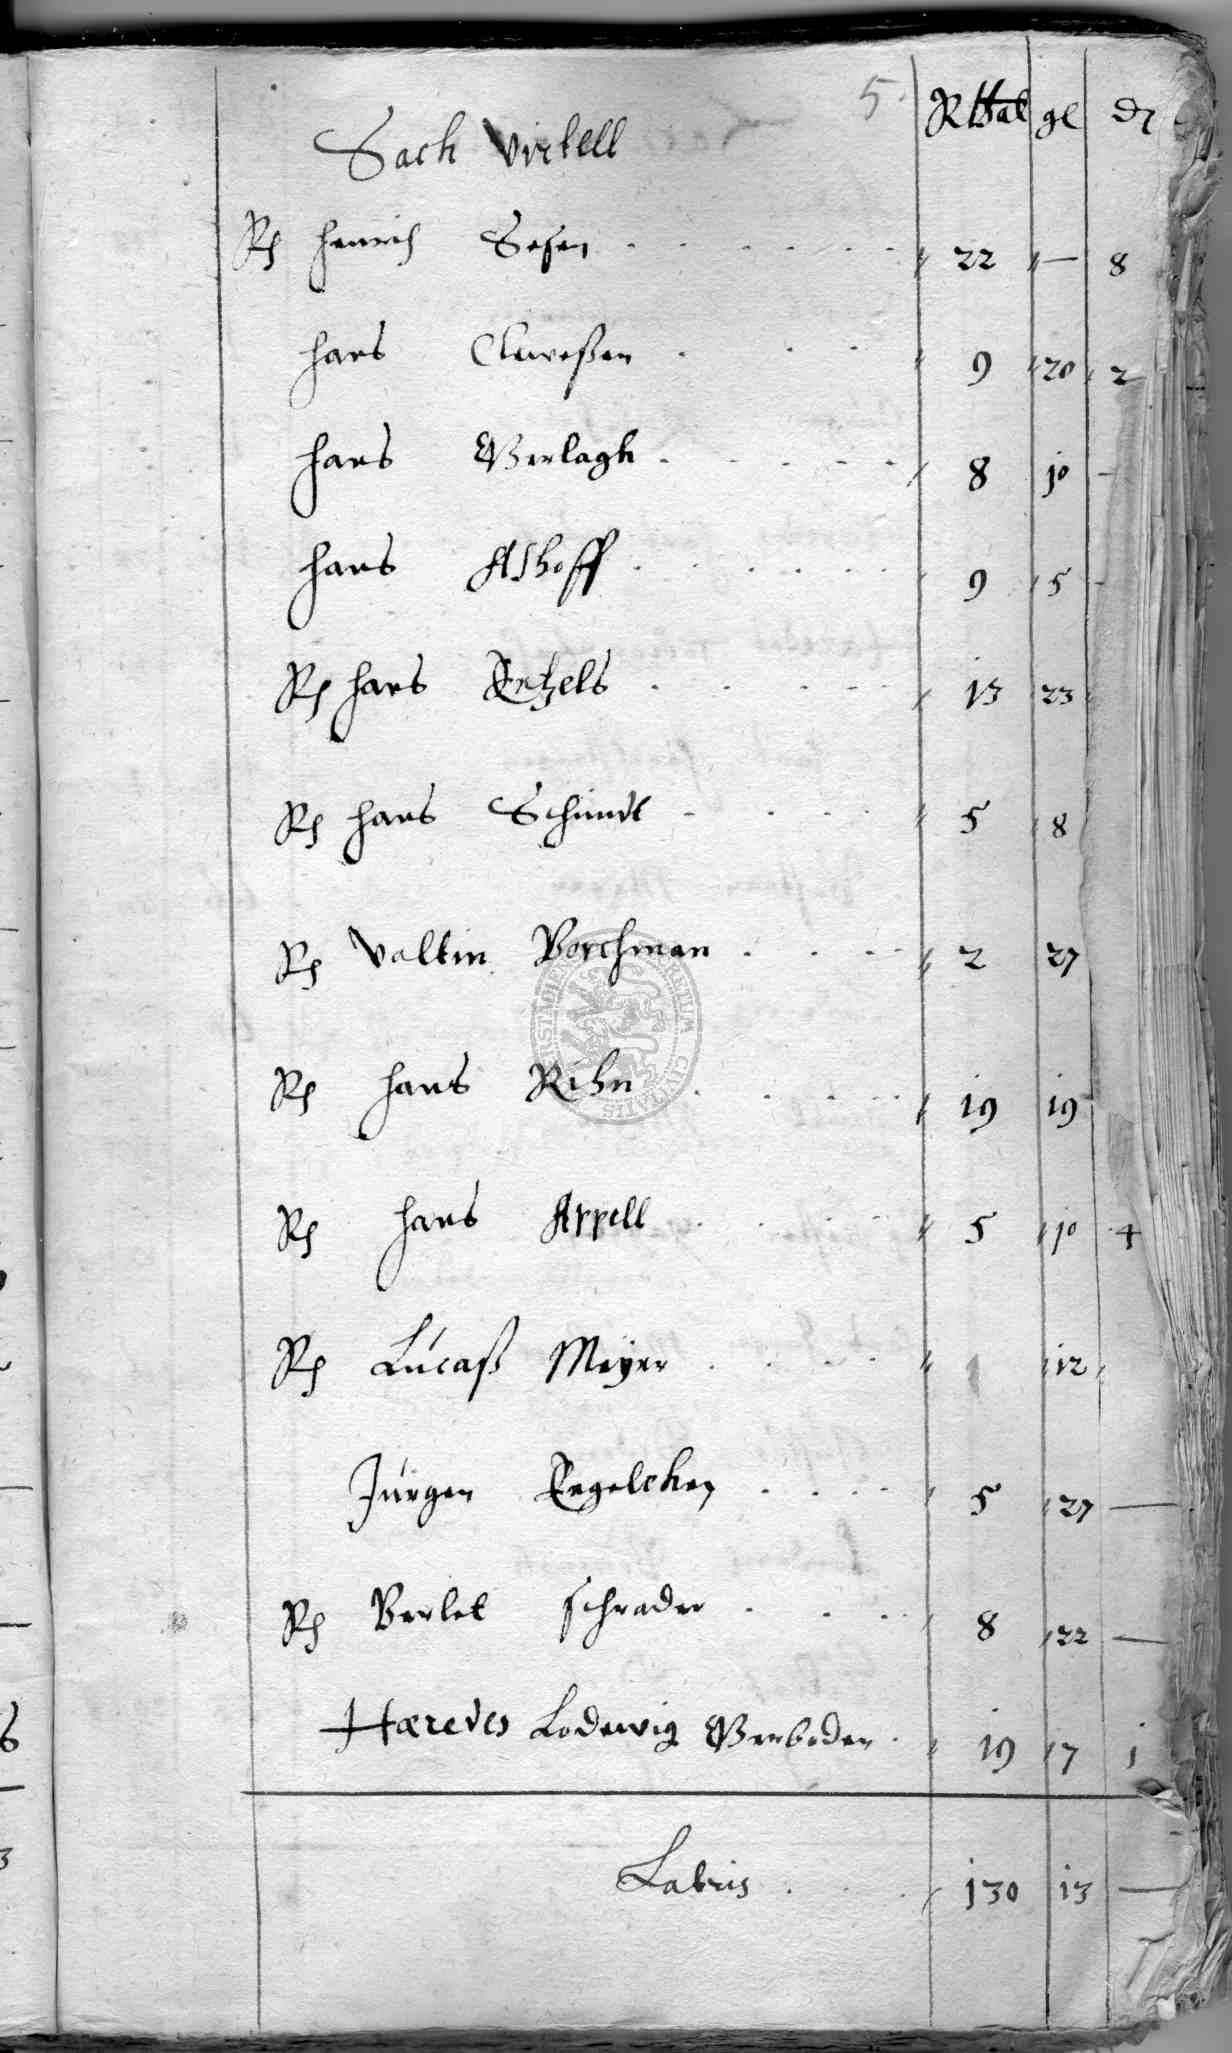 5.
Sack Virtell Rthal gl ₰
Rß Henrich Sesen . . . . . . 22 — 8
Hans Cluveßen . . . 9 20 2
Hans Werlagk . . . . . 8 10 -
Hans Ashoff . . . . . . 9 5 -
Rß Hans Retzels . . . . . 13 23
Rß Hans Schmidt - . . . 5 8
Rß Valtin Borchman . . . . 2 27
Rß Hans Rehn . . . . 19 19
Rß Hans Appell . . . . 5 10 4
Rß Lucaß Meyer . . . . 12
Jürgen Engelcken . . . . 5 27 —
Rß Berlet schrader . . . 8 22 —
Hæredes Lodewig Verboden . 19 17 1
Lateris . . . 130 13 —
SIGILLUM CIVITATIS